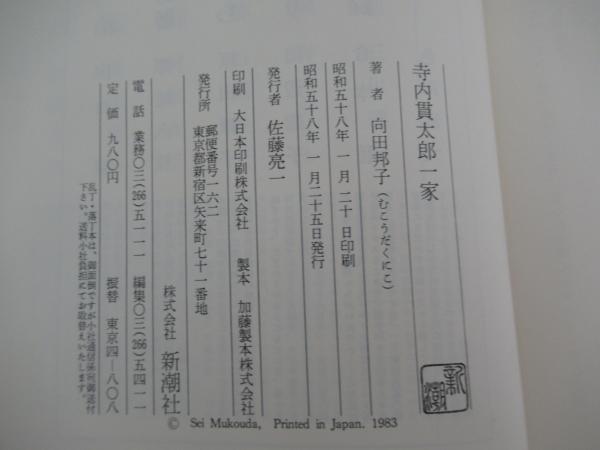 寺内貫太郎一家
著者 向田邦子(むこうだくにこ)
昭和五十八年 一月二十日印刷
昭和五十八年 一月二十五日発行
発行者 佐藤亮一
印刷 大日本印刷株式会社 製本 加藤製本株式会社
発行所
郵便番号一六二
東京都新宿区矢来町七十一番地
株式会社 新潮社
電話 業務〇三(266)五一一一 編集〇三(266)五四一一
定価 九八〇円 振替 東京四―八〇八
乱丁・落丁本は、御面倒ですが小社通信係宛御送付
下さい。送料小社負担にてお取替えいたします。
新潮
© Sei Mukouda, Printed in Japan. 1983